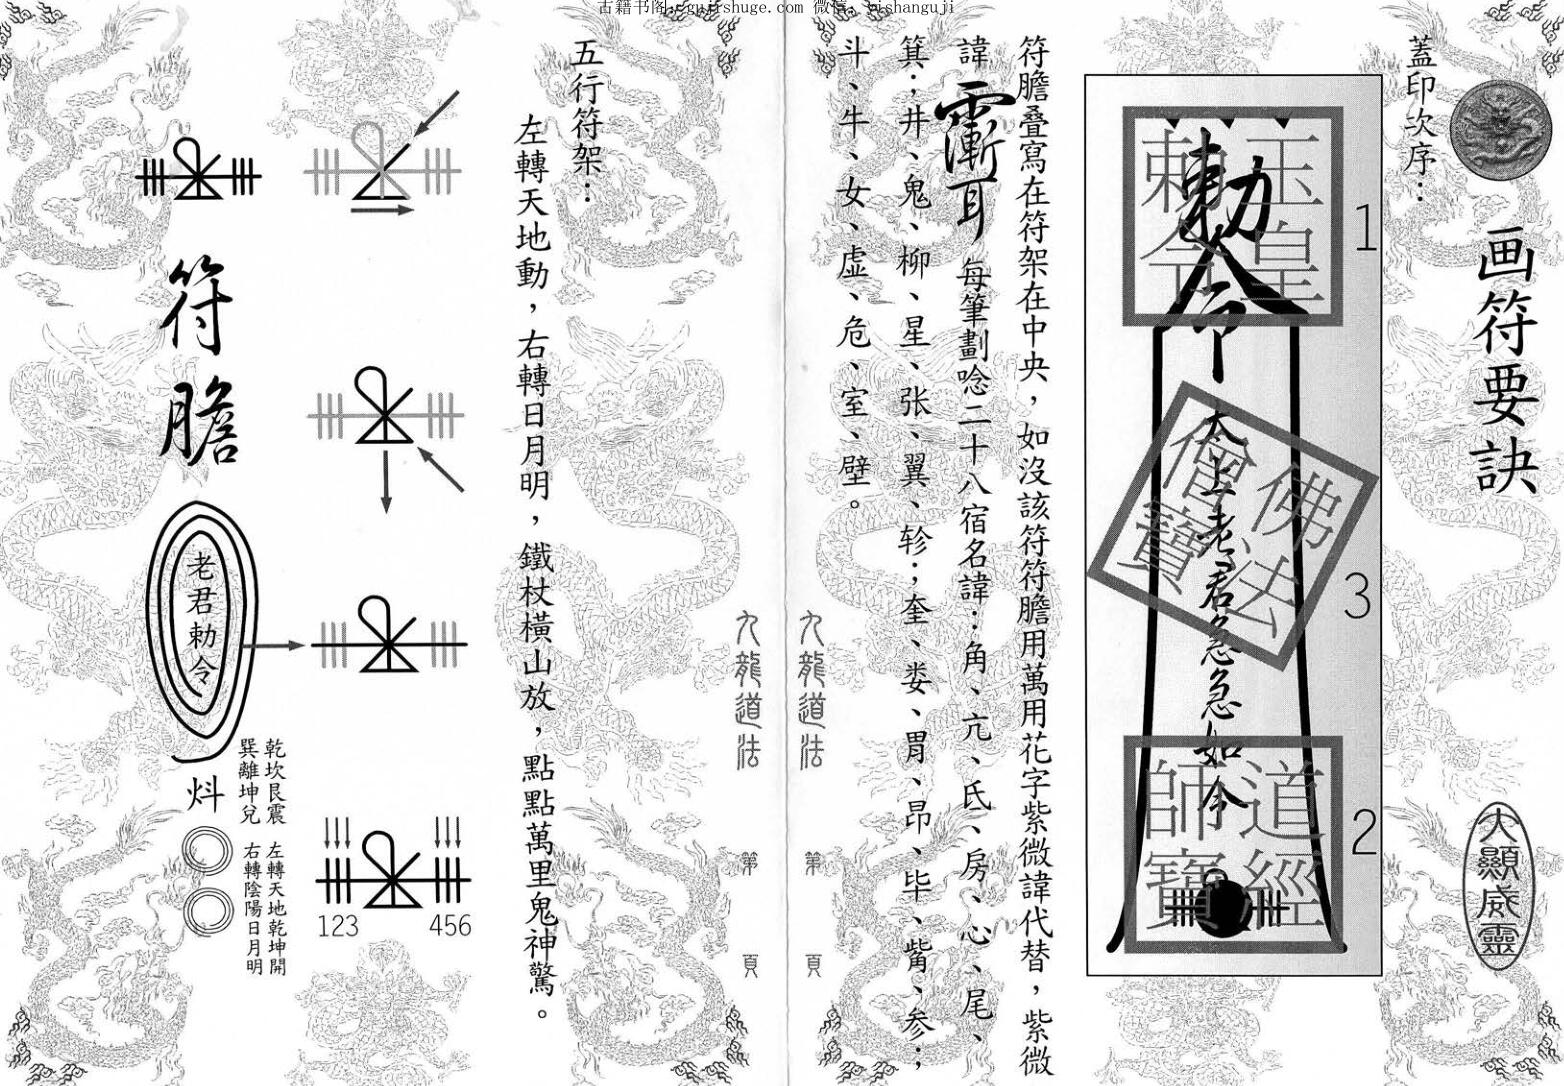 古籍书阁：gujishuge.com 微信：yishanguji
画符要訣
大顯威靈
蓋印次序：
玉皇
勅令
1
勅令
佛法
僧寶
3
太上老君急急如令
道經
師寶
2
符膽叠寫在符架在中央，如沒該符符膽用萬用花字紫微諱代替，紫微
諱 每筆劃唸二十八宿名諱：角、亢、氏、房、心、尾、
箕；井、鬼、柳、星、张、翼、轸；奎、娄、胃、昂、毕、觜、参；
斗、牛、女、虚、危、室、壁。
九龍道法
第 頁
九龍道法
第 頁
五行符架：
左轉天地動，右轉日月明，鐵杖橫山放，點點萬里鬼神驚。
123
456
符膽
老君勅令
炓
乾坎艮震 左轉天地乾坤開
巽離坤兌 右轉陰陽日月明